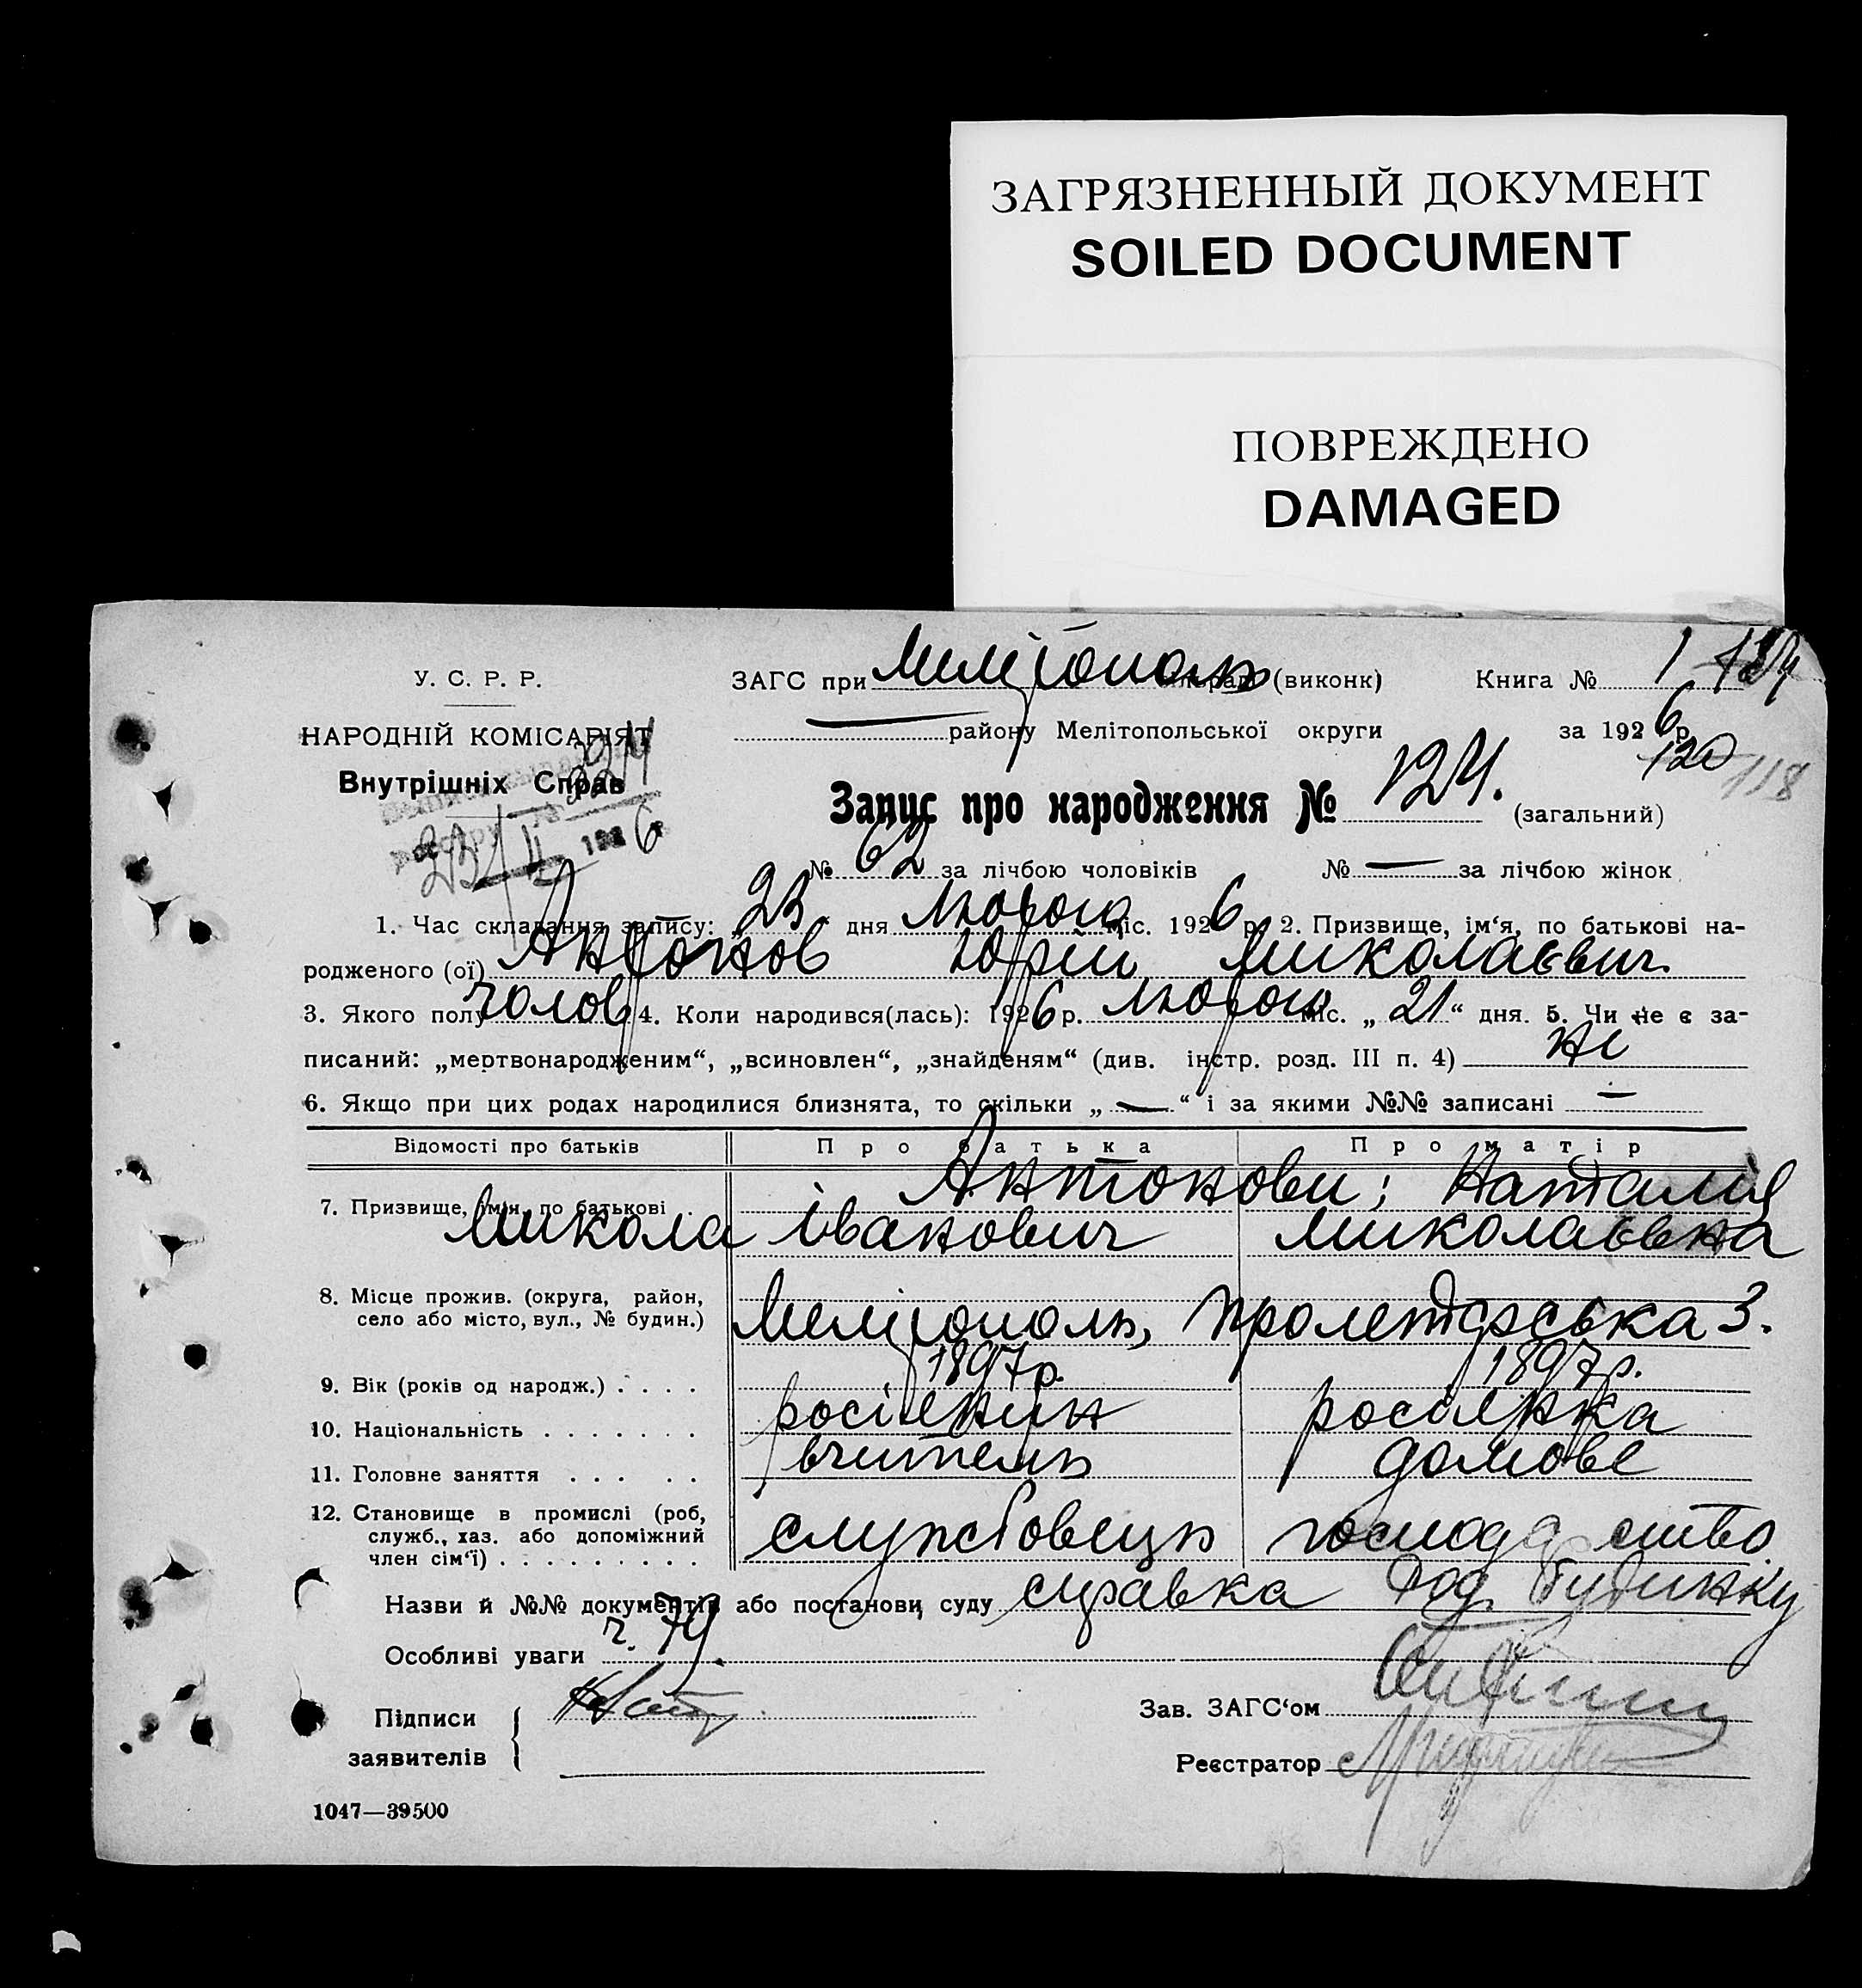 ЗАГРЯЗНЕННЫЙ ДОКУМЕНТ
SOILED DOCUMENT
ПОВРЕЖДЕНО
DAMAGED
У. С. Р. Р.
НАРОДНІЙ КОМІСАРІЯТ
Внутрішніх Справ
ЗАГС при Мелітополь (виконк) Книга № 1
— району Мелітопольської округи за 1926 р.
120 118
Запис про народження № 124. (загальний)
№ 62 за лічбою чоловіків № — за лічбою жінок
23/II 1926
1. Час складання запису: „23 дня Лютого міс. 1926 р. 2. Призвище, ім‘я, по батькові на-
родженого (ої) Антонов Юрій Миколаєвич.
3. Якого полу чолов 4. Коли народився(лась): 1926 р. Лютого міс. „21“ дня. 5. Чи не є за-
писаний: „мертвонародженим“, „всиновлен“, „знайденям“ (див. інстр. розд. III п. 4) не
6. Якщо при цих родах народилися близнята, то скільки „—“ і за якими №№ записані —
Відомості про батьків Про батька Про матір
7. Призвище, ім‘я, по батькові . Антонови; Наталия
Микола Іванович Миколаєвна
8. Місце прожив. (округа, район,
село або місто, вул., № будин.) Мелітополь, Пролетарська 3.
9. Вік (років од народж.) . . . . 1897р. 1897р.
10. Національність . . . . . . . росіянин росіянка
11. Головне заняття . . . . . вчитель домове
12. Становище в промислі (роб,
служб., хаз. або допоміжний
член сім‘ї) . . . . . . . . . службовець господарство
Назви й №№ документів або постанови суду справка Род. будинку
Особливі уваги ч. 79.
Підписи
заявителів
Зав. ЗАГС‘ом
Реєстратор
1047—39500